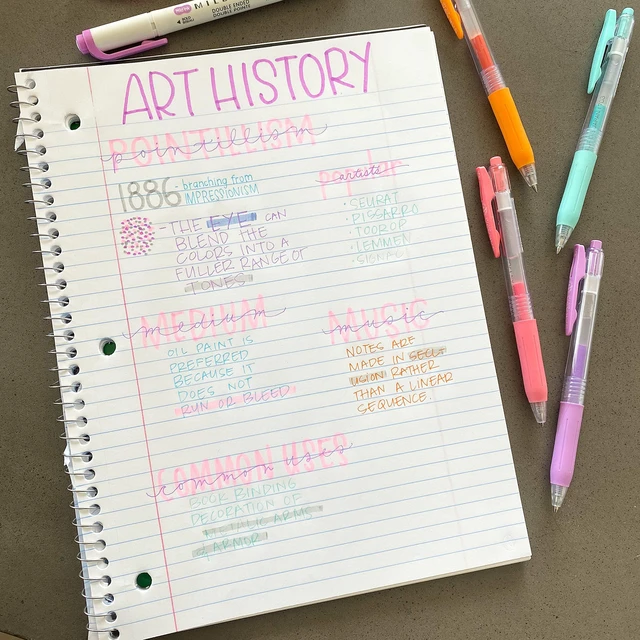 MIL
DOUBLE ENDED
DOUBLE POINTES
ART HISTORY
POINTILLISM
pointillism
1886 - branching from
IMPRESSIONISM
- THE EYE CAN
BLEND THE
COLORS INTO A
FULLER RANGE OF
TONES
artists
· SEURAT
· PISSARRO
· TOOROP
· LEMMEN
· SIGNAC
MEDIUM
medium
OIL PAINT IS
PREFERRED
BECAUSE IT
DOES NOT
RUN OR BLEED
MUSIC
music
NOTES ARE
MADE IN SECL-
USION RATHER
THAN A LINEAR
SEQUENCE.
COMMON USES
common uses
BOOK BINDING
DECORATION OF
METALLIC ARMS
& ARMOR